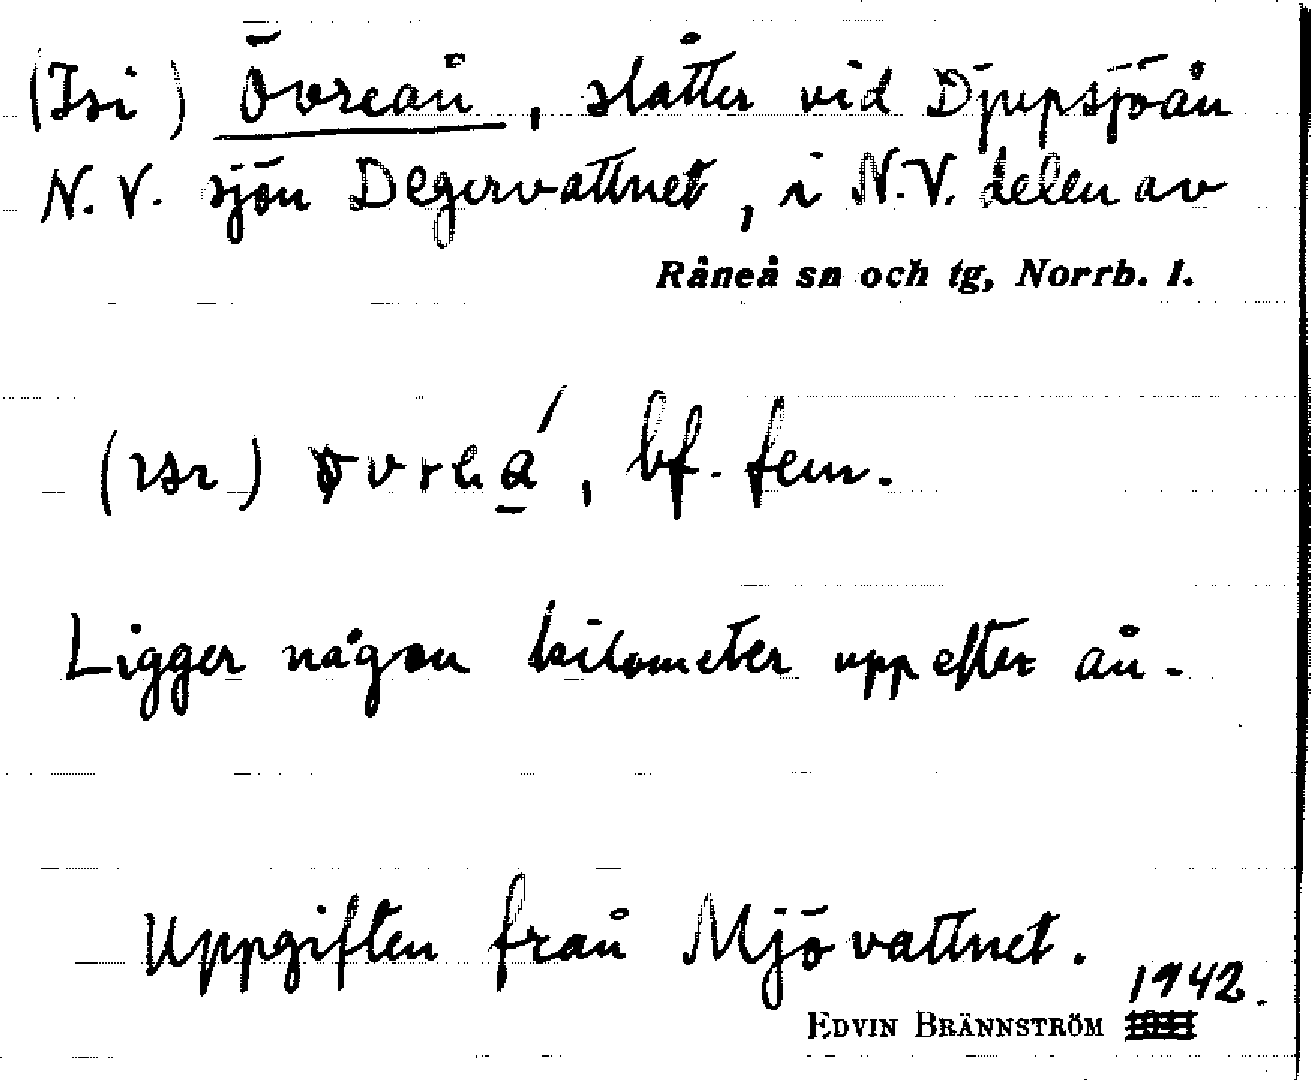 (Isi) Övreån, slåtter vid Djupsjöån
N.V. sjön Degervattnet, i N.V. delen av
Råneå sn och tg, Norrb. l.
bf. fem.
Ligger någon kilometer upp efter ån.
Uppgiften från Mjövattnet.
1942.
EDVIN BRÄNNSTRÖM